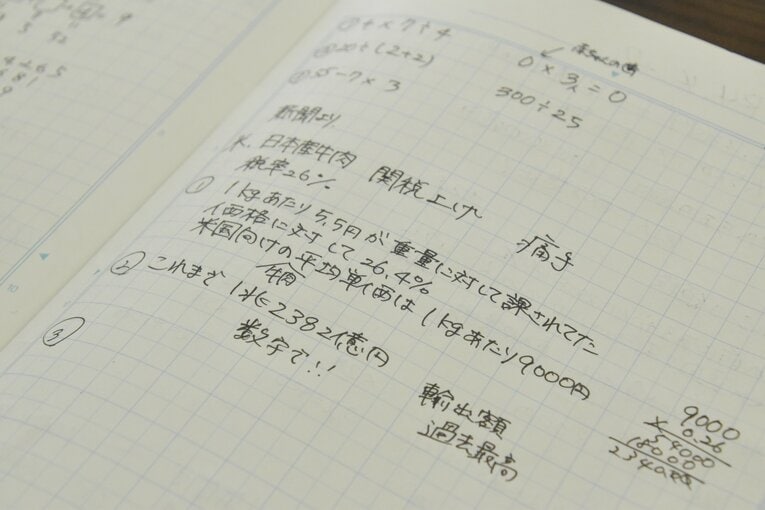 9
5 52
4265
681
9
① + × 7 ÷ 4
②20÷(2+2)
③55-7×3
0×3人=0
300÷25
新聞より
米、日本産牛肉 関税上げ 痛手
税率26%
① 1kgあたり5.5円が重量に対して課されてた
価格に対して26.4%
米国向けの平均単価は1kgあたり9000円
② これまで 年間
③ 1兆2382億円
数字で!!
輸出額
過去最高
9000
×0.26
54000
18000